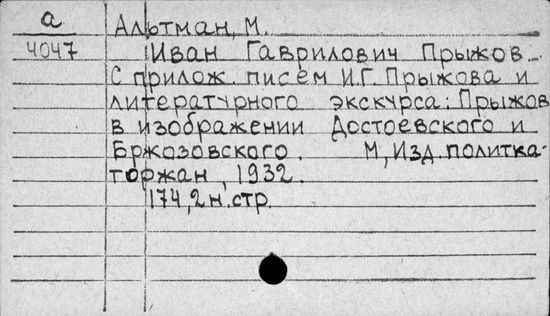 а
4047
Альтман, М.
Иван Гаврилович Прыжов.
С прилож. писем И.Г. Прыжова и
литературного экскурса: Прыжов
в изображении Достоевского и
Бржозовского. М, Изд. политка-
торжан, 1932.
174, 2 н. стр.